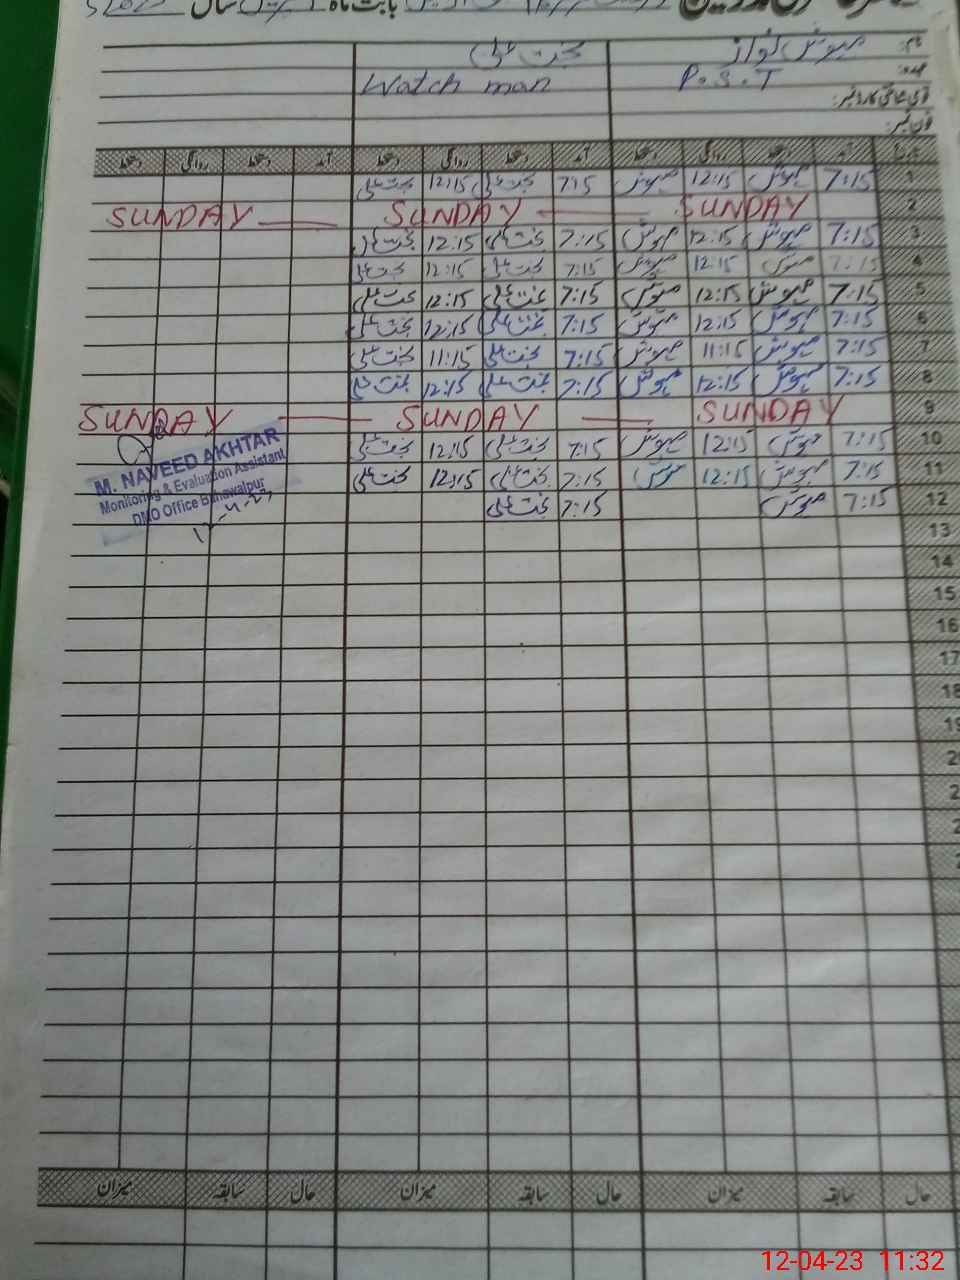 بابت ماہ اپریل سال 2023
نام: مہوش نواز بخت علی
عہدہ: P.S.T Watch man
قومی شناختی کارڈ نمبر:
فون نمبر:
آمد دستخط روانگی دستخط آمد دستخط روانگی دستخط آمد دستخط روانگی دستخط
1 7:15 مہوش 12:15 مہوش 7:15 بخت علی 12:15 بخت علی
2 SUNDAY SUNDAY SUNDAY
3 7:15 مہوش 12:15 مہوش 7:15 بخت علی 12:15 بخت علی
4 7:15 مہوش 12:15 مہوش 7:15 بخت علی 12:15 بخت علی
5 7:15 مہوش 12:15 مہوش 7:15 بخت علی 12:15 بخت علی
6 7:15 مہوش 12:15 مہوش 7:15 بخت علی 12:15 بخت علی
7 7:15 مہوش 11:15 مہوش 7:15 بخت علی 11:15 بخت علی
8 7:15 مہوش 12:15 مہوش 7:15 بخت علی 12:15 بخت علی
9 SUNDAY SUNDAY SUNDAY
10 7:15 مہوش 12:15 مہوش 7:15 بخت علی 12:15 بخت علی
11 7:15 مہوش 12:15 مہوش 7:15 بخت علی 12:15 بخت علی
12 7:15 مہوش 7:15 بخت علی
M. NAVEED AKHTAR
Monitoring & Evaluation Assistant
DMO Office Bahawalpur
12-4-23
13
14
15
16
17
18
19
حال سابقہ میزان حال سابقہ میزان حال سابقہ میزان
12-04-23 11:32